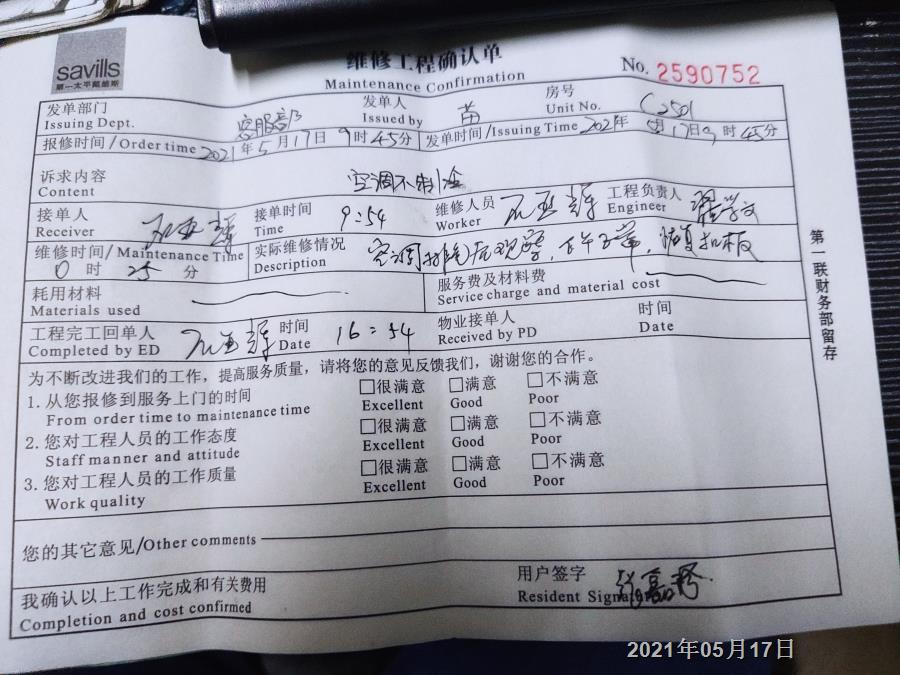 savills
第一太平戴维斯
维修工程确认单
Maintenance Confirmation
No. 2590752
发单部门 客服部 发单人 苗 房号 C2501
Issuing Dept. Issued by Unit No.
报修时间/Order time 2021年5月17日9时45分 发单时间/Issuing Time 2021年5月17日9时45分
诉求内容 空调不制冷
Content
接单人 接单时间 9:54 维修人员 工程负责人
Receiver Time Worker Engineer
维修时间/Maintenance Time 实际维修情况 空调
0时25分 Description
耗用材料 服务费及材料费
Materials used Service charge and material cost
工程完工回单人 时间 16:54 物业接单人 时间
Completed by ED Date Received by PD Date
为不断改进我们的工作，提高服务质量，请将您的意见反馈我们，谢谢您的合作。
1. 从您报修到服务上门的时间 □很满意 □满意 □不满意
From order time to maintenance time Excellent Good Poor
2. 您对工程人员的工作态度 □很满意 □满意 □不满意
Staff manner and attitude Excellent Good Poor
3. 您对工程人员的工作质量 □很满意 □满意 □不满意
Work quality Excellent Good Poor
您的其它意见/Other comments
我确认以上工作完成和有关费用 用户签字
Completion and cost confirmed Resident Signature
第一联财务部留存
2021年05月17日